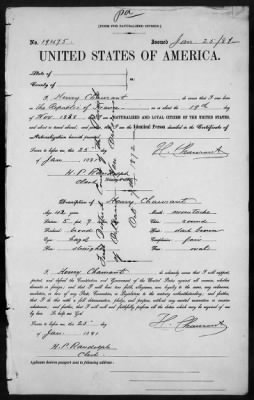 [FORM FOR NATURALIZED CITIZEN.]
No. 19475. Issued Jan 25/81
UNITED STATES OF AMERICA.
State of
County of
I, Henry Chauvant
The Republic of France on or about the 19th day
of Nov. NATURALIZED AND LOYAL CITIZEN OF THE UNITED STATES,
about to travel abroad; and further, that I am the identical Person described in the Certificate of
Naturalization herewith presented.
Sworn to before me this 25
of Jan 1881
H. Chauvant
H. P. Randolph
Clerk
Description of Henry Chauvant
Age: 42 years Mouth: moustache
Stature: 5 ft 9 Chin: round
Forehead: broad Hair: dark brown
Eyes: hazel Complexion: fair
Nose: straight Face: oval
I, Henry Chauvant do solemnly swear that I will support,
protect and defend the Constitution and Government of the United States against all enemies, whether
domestic or foreign; and that I will bear true faith, allegiance and loyalty to the same, any ordinance,
resolution, or law of any State Convention or Legislature to the contrary notwithstanding; and further,
that I do this with a full determination, pledge, and purpose, without any mental reservation or evasion
whatsoever; and further, that I will well and faithfully perform all the duties which may be required of me
by law: So help me God.
Sworn to before me this 25
of Jan 1881
H. Chauvant
H. P. Randolph
Clerk
Applicants desire passport sent to following address: